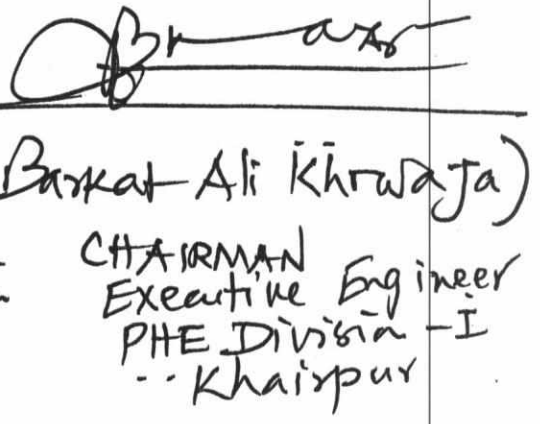 Barkat Ali Khwaja)
CHAIRMAN
Executive Engineer
PHE Division - I
Khairpur